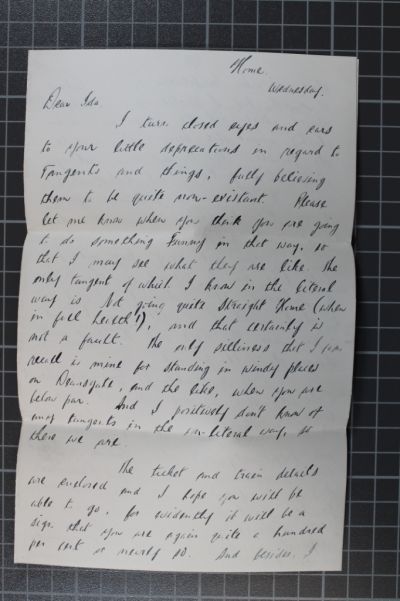 Home.
Wednesday.
Dear Ida
I turn closed eyes and ears
to your little deprecations in regard to
Tangents and things, fully believing
them to be quite non-existant. Please
let me know when you think you are going
to do something Funny in that way, so
that I may see what they are like. The
only tangent of which I know in the literal
way is not going quite straight Home (when
in full health!), and that certainly is
not a fault. The only silliness that I can
recall is mine for standing in windy places
on Deansgate, and the like, when you are
below par. And I positively don't know of
any tangents in the un-literal way, so
there we are.
The ticket and train details
are enclosed and I hope you will be
able to go, for evidently it will be a
sign that you are again quite a hundred
per cent or nearly so. And besides, I